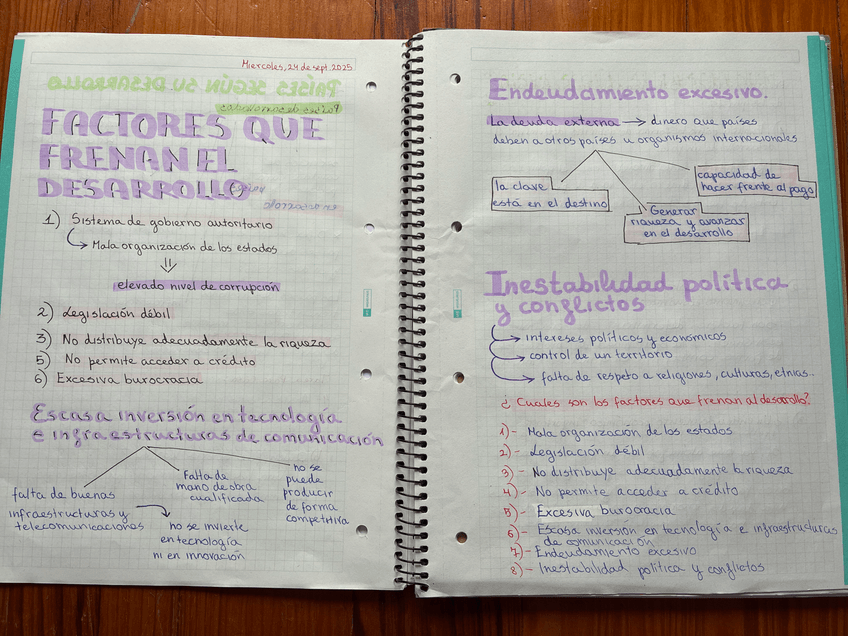 Miercoles, 24 de sept. 2025
PAÍSES SEGÚN SU DESARROLLO
FACTORES QUE
FRENAN EL
DESARROLLO
1) Sistema de gobierno autoritario
Mala organización de los estados
elevado nivel de corrupción
2) Legislación débil
3) No distribuye adecuadamente la riqueza
5) No permite acceder a crédito
6) Excesiva burocracia
Escasa inversión en tecnología
e infraestructuras de comunicación
falta de buenas
infraestructuras y
telecomunicaciones
no se invierte
en tecnología
ni en innovación
Falta de
mano de obra
cualificada
no se
puede
producir
de forma
competitiva
Endeudamiento excesivo.
La deuda externa → dinero que países
deben a otros países u organismos internacionales
la clave
está en el destino
Generar
riqueza y avanzar
en el desarrollo
capacidad de
hacer frente al pago
Inestabilidad política
y conflictos
intereses políticos y económicos
control de un territorio
falta de respeto a religiones, culturas, etnias..
¿Cuales son los factores que frenan al desarollo?
1)- Mala organización de los estados
2)- Legislación débil
3)- No distribuye adecuadamente la riqueza
4)- No permite acceder a crédito
5)- Excesiva burocracia
6)- Escasa inversión en tecnología e infraestructuras
de comunicación
7)- Endeudamiento excesivo
8)- Inestabilidad política y conflictos